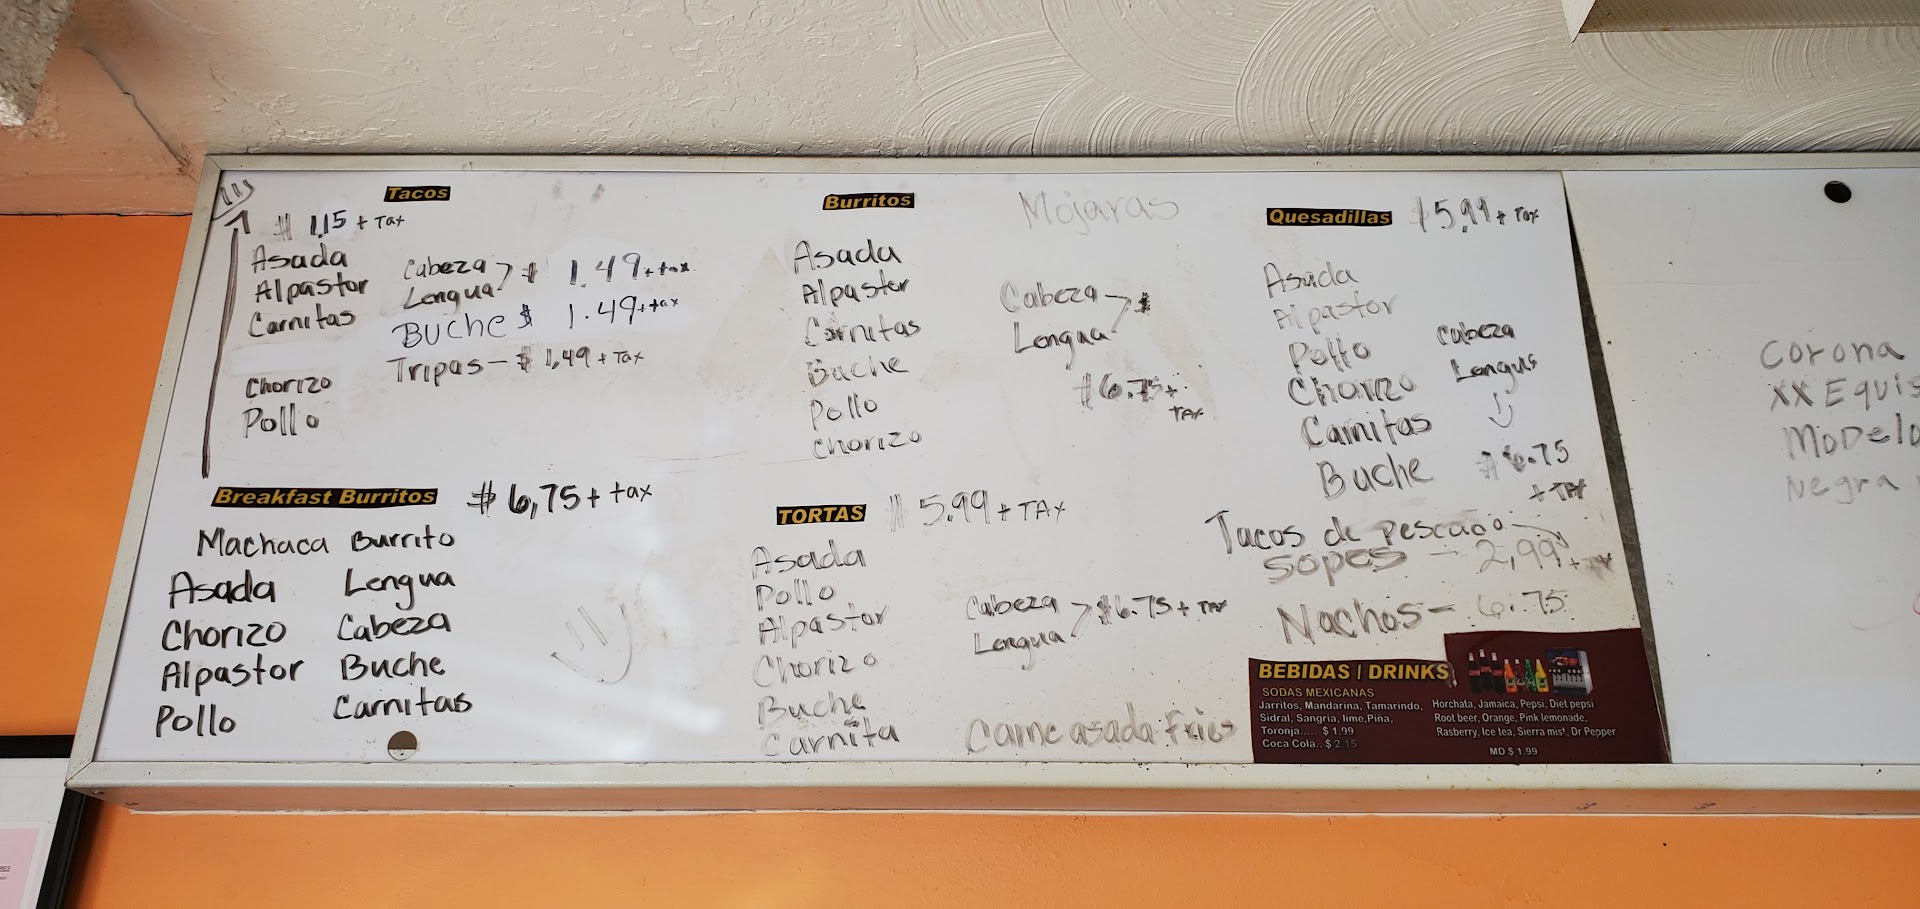 Tacos
$ 1.15 + Tax
Asada
Alpastor
Carnitas
Chorizo
Pollo
Cabeza
Lengua > $ 1.49 + tax
Buche $ 1.49 + tax
Tripas - $ 1,49 + Tax
Breakfast Burritos $ 6,75 + tax
Machaca Burrito
Asada Lengua
Chorizo Cabeza
Alpastor Buche
Pollo Carnitas
Burritos
Mojaras
Asada
Alpastor
Carnitas
Buche
Pollo
Chorizo
Cabeza
Lengua > $
$6.75+
TAX
TORTAS $ 5.99 + TAX
Asada
Pollo
Alpastor
Chorizo
Buche
Carnita
Cabeza
Lengua > $6.75 + TAX
Carne asada Fries
Quesadillas $5,99 + Tax
Asada
Alpastor
Pollo
Chorizo
Carnitas
Buche
Cabeza
Lengua
$6.75
+ TAX
Tacos de pescado
Sopes - 2,99 + TAX
Nachos - 6.75
BEBIDAS / DRINKS
SODAS MEXICANAS
Jarritos, Mandarina, Tamarindo,
Sidral, Sangria, lime,Piña,
Toronja..... $ 1.99
Coca Cola.. $ 2.15
Horchata, Jamaica, Pepsi, Diet pepsi
Root beer, Orange, Pink lemonade,
Rasberry, Ice tea, Sierra mist, Dr Pepper
MD $ 1.99
Corona
XX Equis
Modelo
Negra